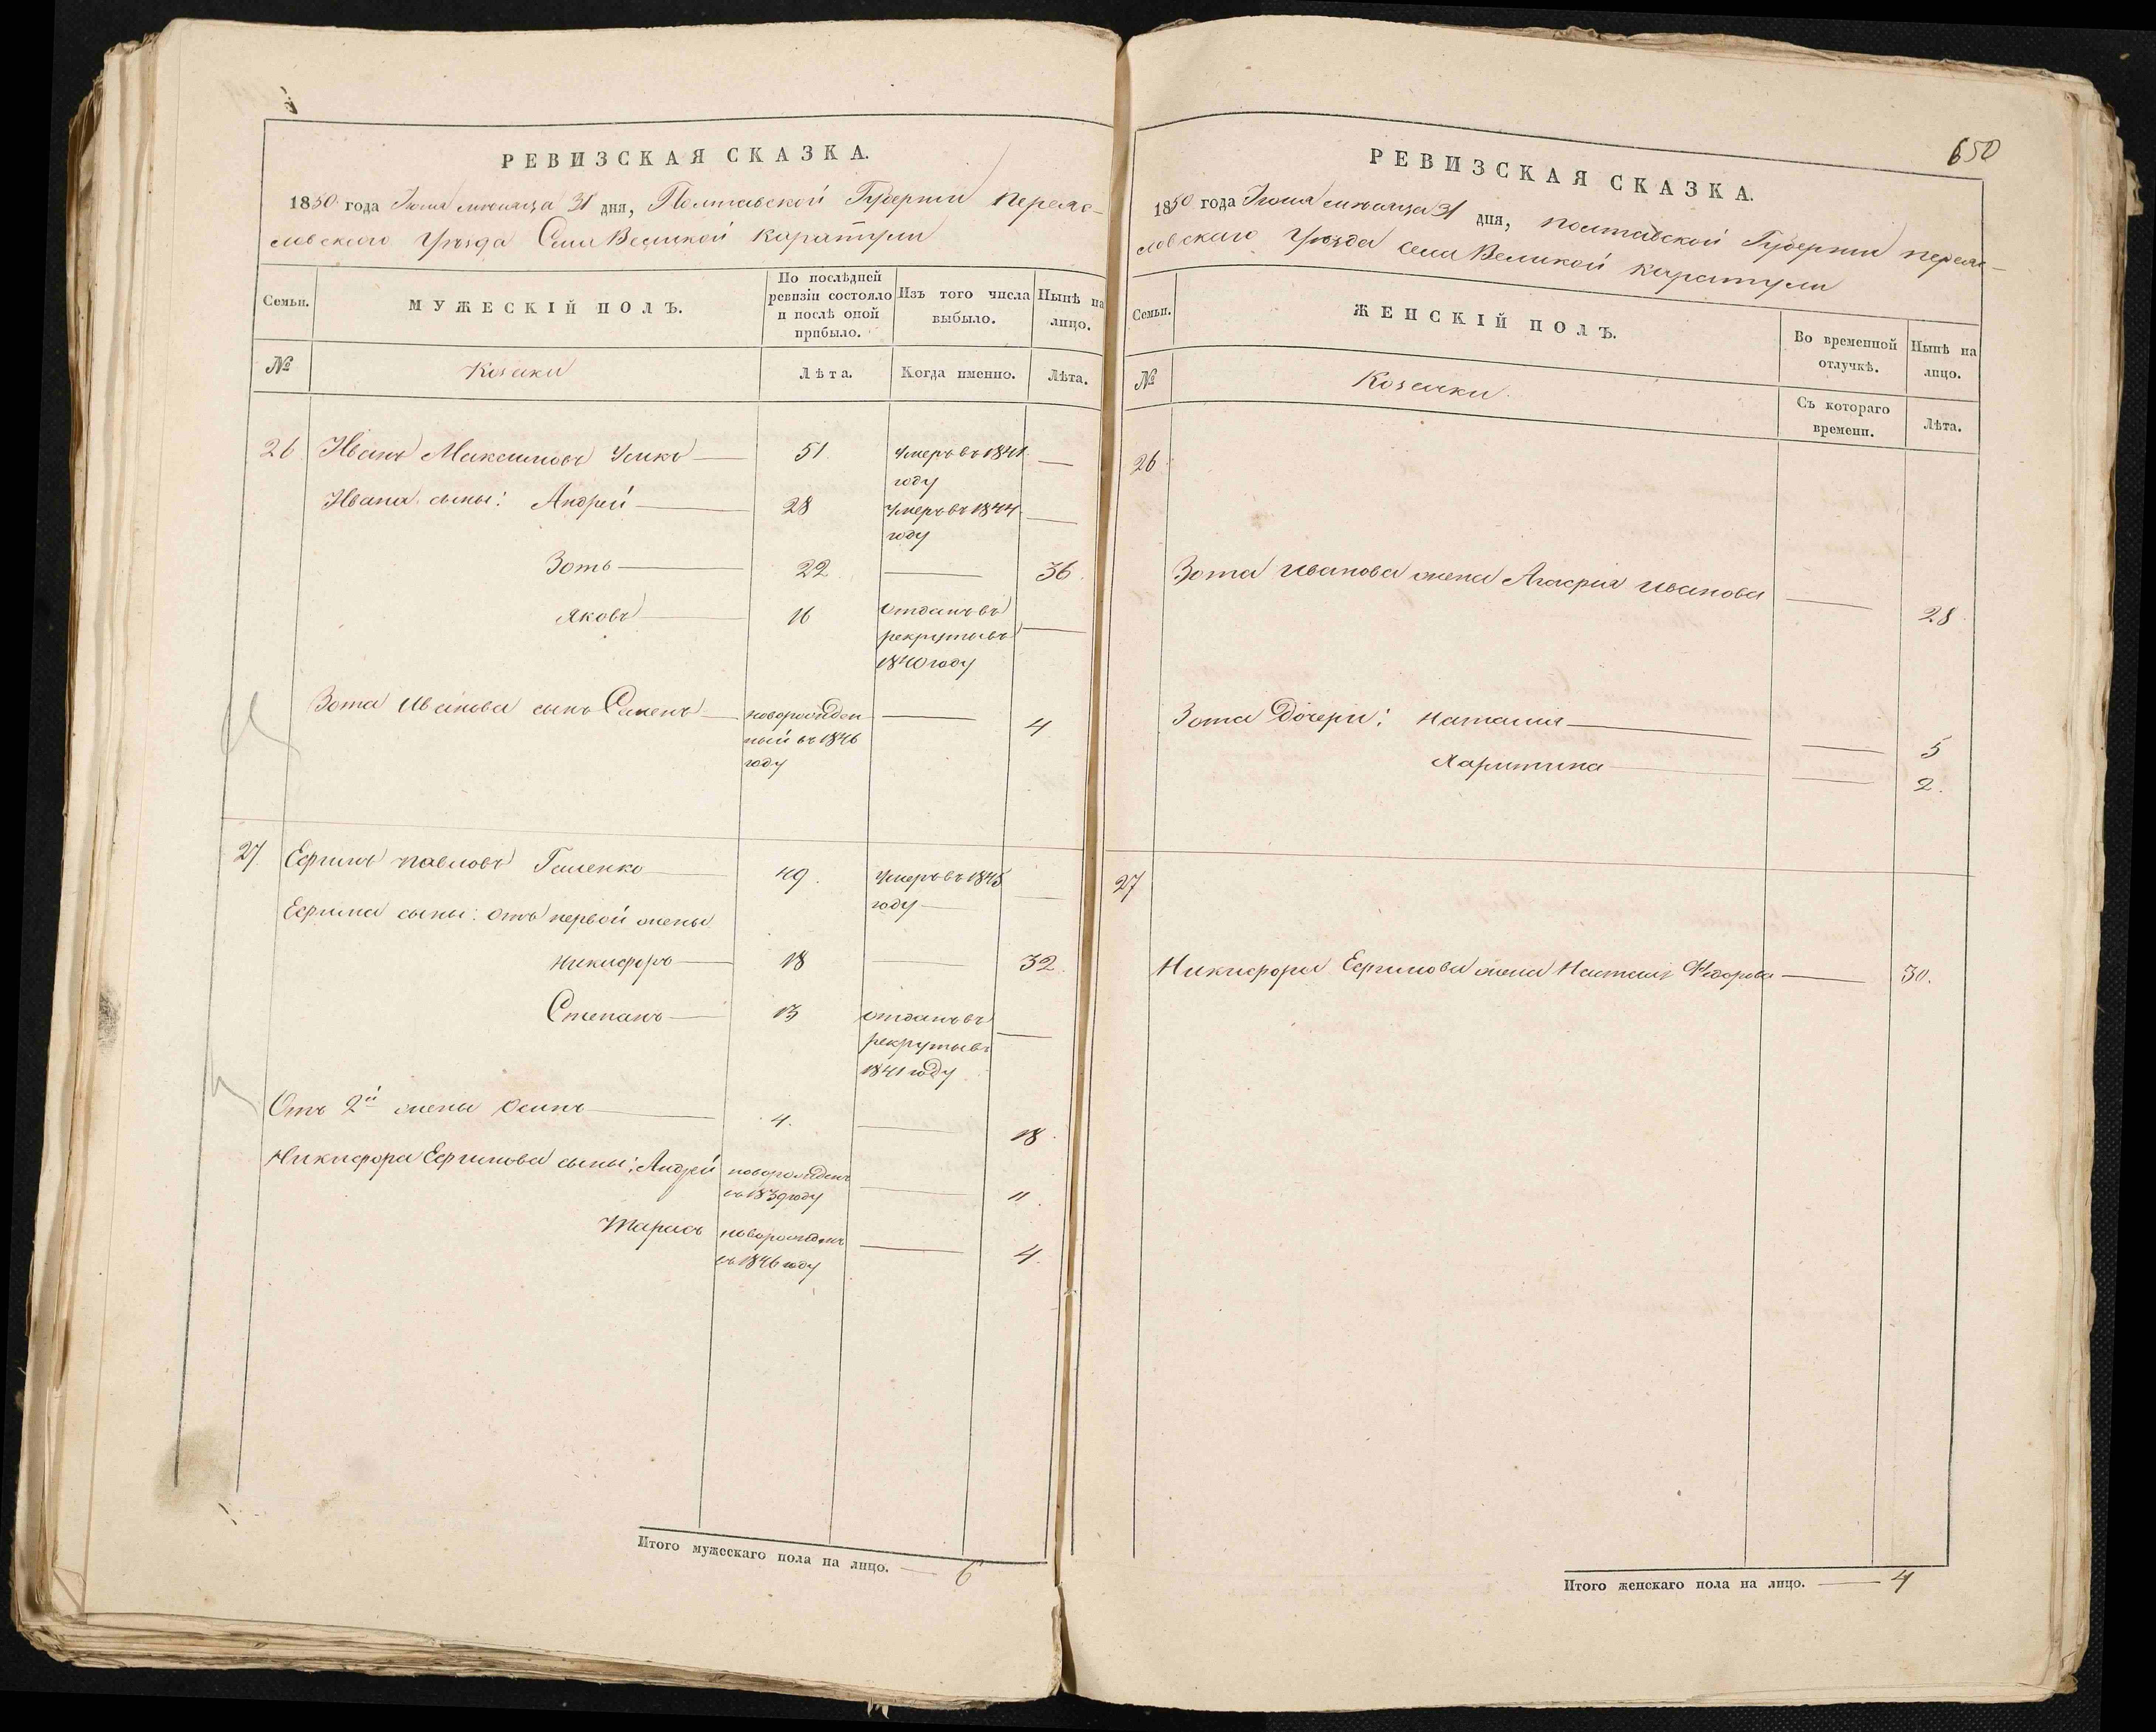 РЕВИЗСКАЯ СКАЗКА.
1850 года Іюля мѣсяца 31 дня, Полтавской Губерніи Переяс-
лавскаго Уѣзда Села Великой Каратули
Семьи.
МУЖЕСКІЙ ПОЛЪ.
По послѣдней ревизіи состояло и послѣ оной прибыло.
Изъ того числа выбыло.
Нынѣ на лицо.
№
Козаки
Лѣта.
Когда именно.
Лѣта.
26 Иванъ Максимовъ Усикъ — 51. Умеръ въ 1841 —
году
Ивана сыны: Андрей — 28 Умеръ въ 1844 —
году
Зотъ — 22 — 36.
Яковъ — 16 Отданъ въ —
рекруты въ
1840 году
Зота Иванова сынъ Семенъ — новорожден — 4
ный въ 1846
году
27. Ефимъ Павловъ Галенко — 49. Умеръ въ 1845 —
году —
Ефима сыны: отъ первой жены
Никифоръ — 18 — 32.
Степанъ — 13 отданъ въ —
рекруты въ
1841 году
Отъ 2й жены Осипъ — 4. — 18.
Никифора Ефимова сыны: Андрей новорожденъ — 11.
въ 1839 году
Тарасъ новорожденъ — 4.
въ 1846 году
Итого мужескаго пола на лицо. — 6
650
РЕВИЗСКАЯ СКАЗКА.
1850 года Іюля мѣсяца 31 дня, Полтавской Губерніи Переяс-
лавскаго Уѣзда Села Великой Каратули
Семьи.
ЖЕНСКІЙ ПОЛЪ.
Во временной отлучкѣ.
Нынѣ на лицо.
№
Козачки.
Съ котораго времени.
Лѣта.
26
Зота Иванова жена Агафія Иванова — 28.
Зота Дочери: Наталия — — 5
Харитина — — 2.
27
Никифора Ефимова жена Федорова — 30.
Итого женскаго пола на лицо. — 4